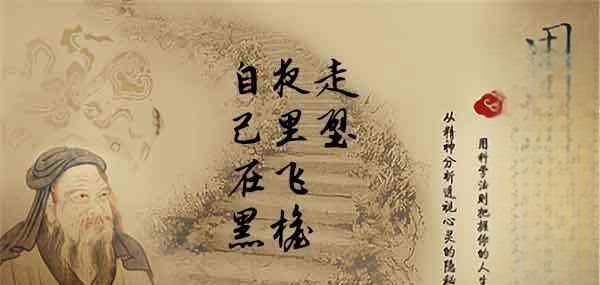 自己在黑
夜里飞檐
走壁
用科学法则把握你的人生
从精神分析透视心灵的隐秘